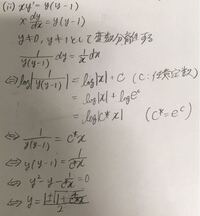 (ii) xy' = y(y-1)
x dy/dx = y(y-1)
y≠0, y≠1として変数分離する
1/y(y-1) dy = 1/x dx
⇔ log|1/y(y-1)| = log|x| + C (C:任意定数)
= log|x| + log e^c
= log|C*x| (C* = e^c)
⇔ 1/y(y-1) = C*x
⇔ y(y-1) = 1/C*x
⇔ y² - y - 1/C*x = 0